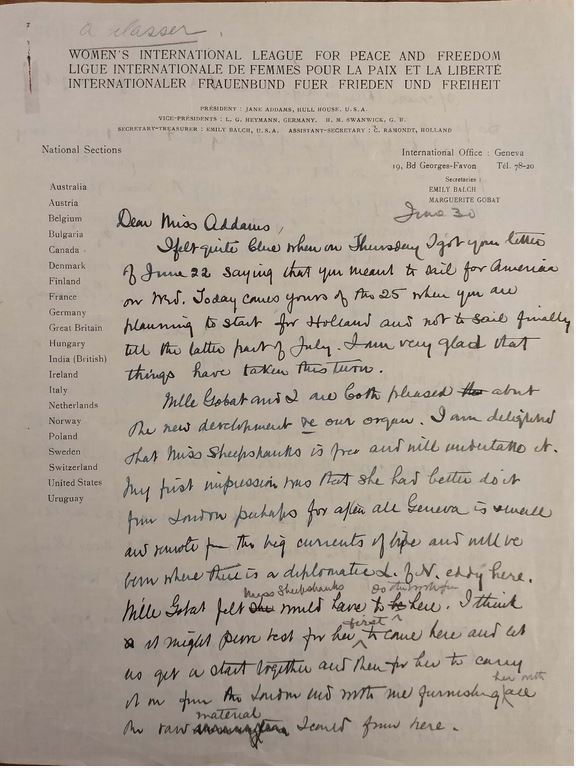 WOMEN'S INTERNATIONAL LEAGUE FOR PEACE AND FREEDOM
LIGUE INTERNATIONALE DE FEMMES POUR LA PAIX ET LA LIBERTÉ
INTERNATIONALER FRAUENBUND FUER FRIEDEN UND FREIHEIT
PRÉSIDENT : JANE ADDAMS, HULL HOUSE, U.S.A.
VICE-PRÉSIDENTS : L. G. HEYMANN, GERMANY, H. M. SWANWICK, G. B.
SECRETARY-TREASURER : EMILY BALCH, U.S.A. ASSISTANT-SECRETARY : C. RAMONDT, HOLLAND
National Sections
International Office : Geneva
19, Bd Georges-Favon Tél. 78-20
Secretaries :
EMILY BALCH
MARGUERITE GOBAT
Australia
Austria
Belgium
Bulgaria
Canada
Denmark
Finland
France
Germany
Great Britain
Hungary
India (British)
Ireland
Italy
Netherlands
Norway
Poland
Sweden
Switzerland
United States
Uruguay
June 30
Dear Miss Addams,
I felt quite blue when on Thursday I got your letter
of June 22 saying that you meant to sail for America
on Wed. Today comes yours of the 25 when you are
planning to start for Holland and not to sail finally
till the latter part of July. I am very glad that
things have taken this turn.
Mlle Gobat and I are both pleased the about
the new development re our organ. I am delighted
that Miss Sheepshanks is free and will undertake it.
My first impression was that she had better do it
from London perhaps for after all Geneva is small
and remote from the big currents of life and will be
even where there is a diplomatic L. of N. eddy here.
Mlle Gobat felt she Miss Sheepshanks would have to be do the work from here. I think
it might prove best for her first to come here and let
us get a start together and then for her to carry
it on from the London end with me furnishing her with all
the raw material I could from here.